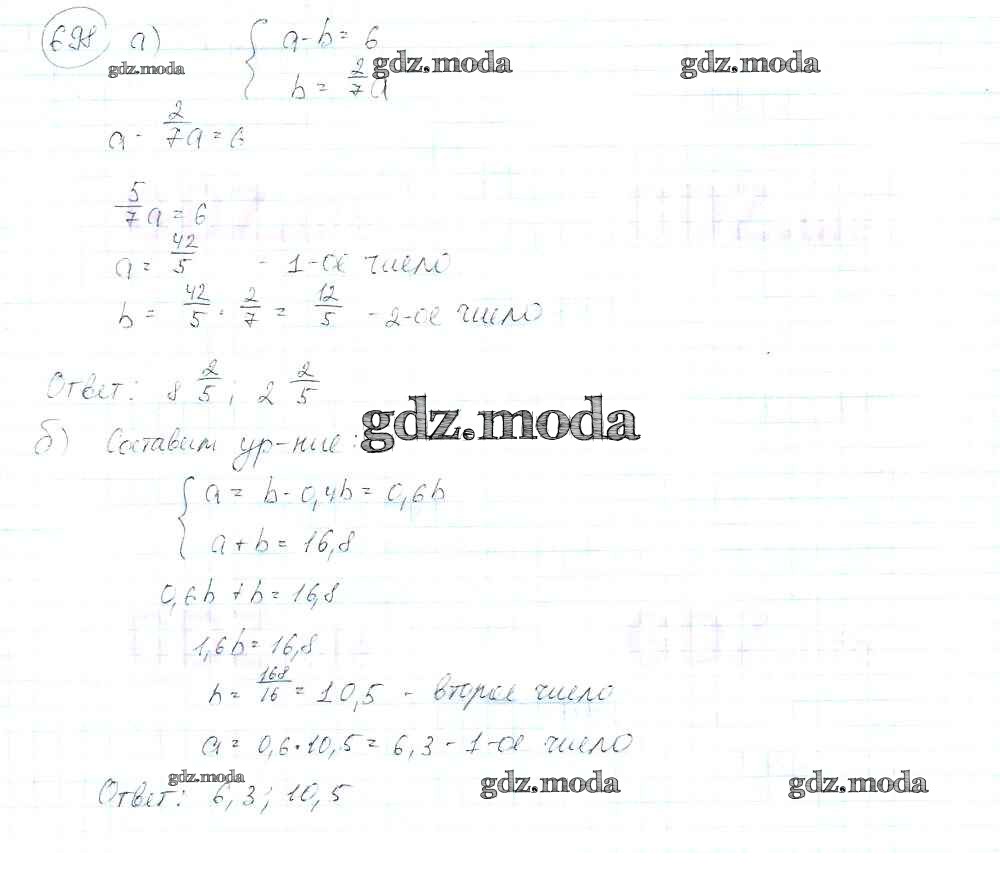 698 а) { a - b = 6
gdz.moda gdz.moda gdz.moda
b = 2/7 a
a - 2/7 a = 6
5/7 a = 6
a = 42/5 - 1-ое число
b = 42/5 · 2/7 = 12/5 - 2-ое число
Ответ: 8 2/5; 2 2/5
gdz.moda
б) Составим ур-ние:
{ a = b - 0,4b = 0,6b
a + b = 16,8
0,6b + b = 16,8
1,6b = 16,8
b = 168/16 = 10,5 - второе число
a = 0,6·10,5 = 6,3 - 1-ое число
gdz.moda gdz.moda gdz.moda
Ответ: 6,3; 10,5